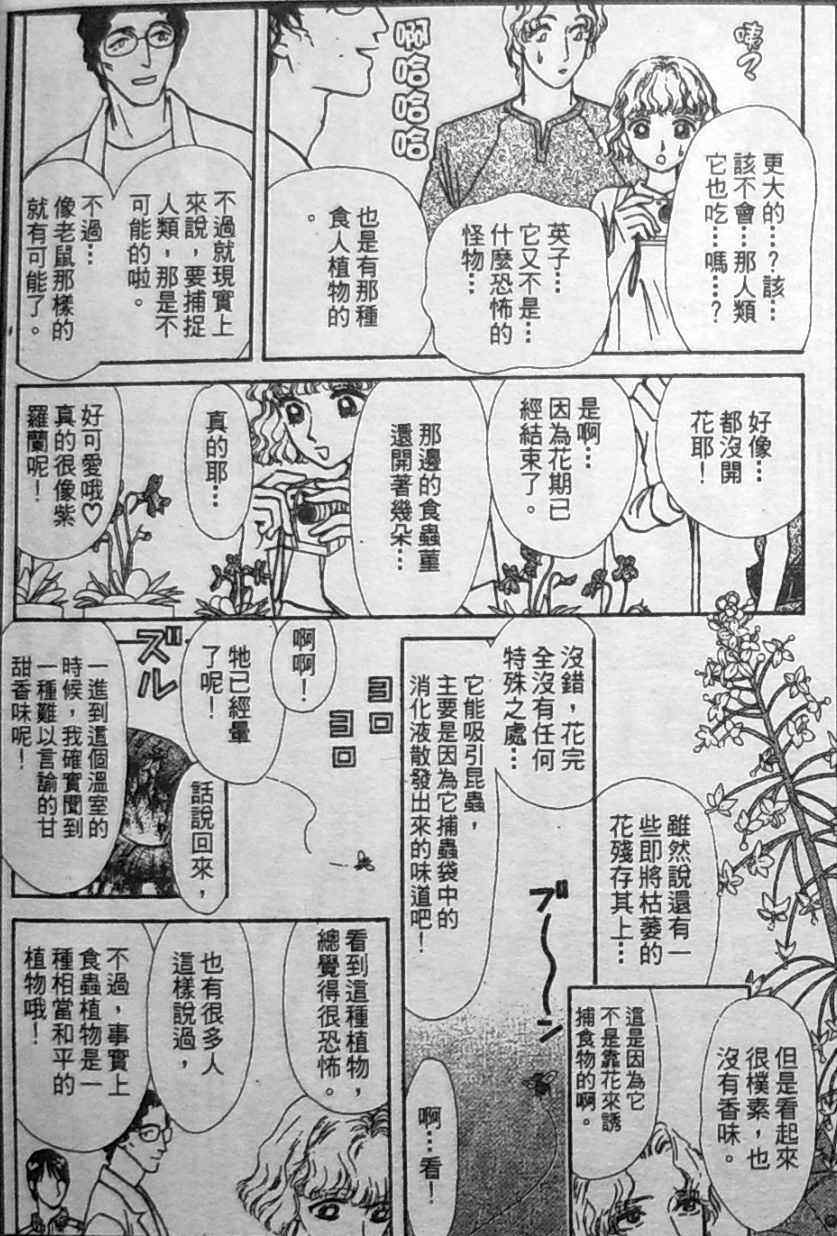 咦？
更大的…？該…
該不會…那人類
它也吃…嗎…？
英子…
它又不是…
什麼恐怖的
怪物…
啊哈哈哈
也是有那種
食人植物的
。
不過就現實上
來說，要捕捉
人類，那是不
可能的啦。
不過…
像老鼠那樣的
就有可能了。
好像…
都沒開
花耶！
是啊…
因為花期已
經結束了。
那邊的食蟲堇
還開著幾朵…
真的耶…
好可愛哦♡
真的很像紫
羅蘭呢！
雖然說還有一
些即將枯萎的
花殘存其上…
但是看起來
很樸素，也
沒有香味。
這是因為它
不是靠花來誘
捕食物的啊。
沒錯，花完
全沒有任何
特殊之處…
它能吸引昆蟲，
主要是因為它捕蟲袋中的
消化液散發出來的味道吧！
ブ〜〜ン
啊…看！
ヨロ
ヨロ
啊啊！
牠已經暈
了呢！
ズル
話說回來，
一進到這個溫室的
時候，我確實聞到
一種難以言諭的甘
甜香味呢！
看到這種植物，
總覺得很恐怖。
也有很多人
這樣說過，
不過，事實上
食蟲植物是一
種相當和平的
植物哦！